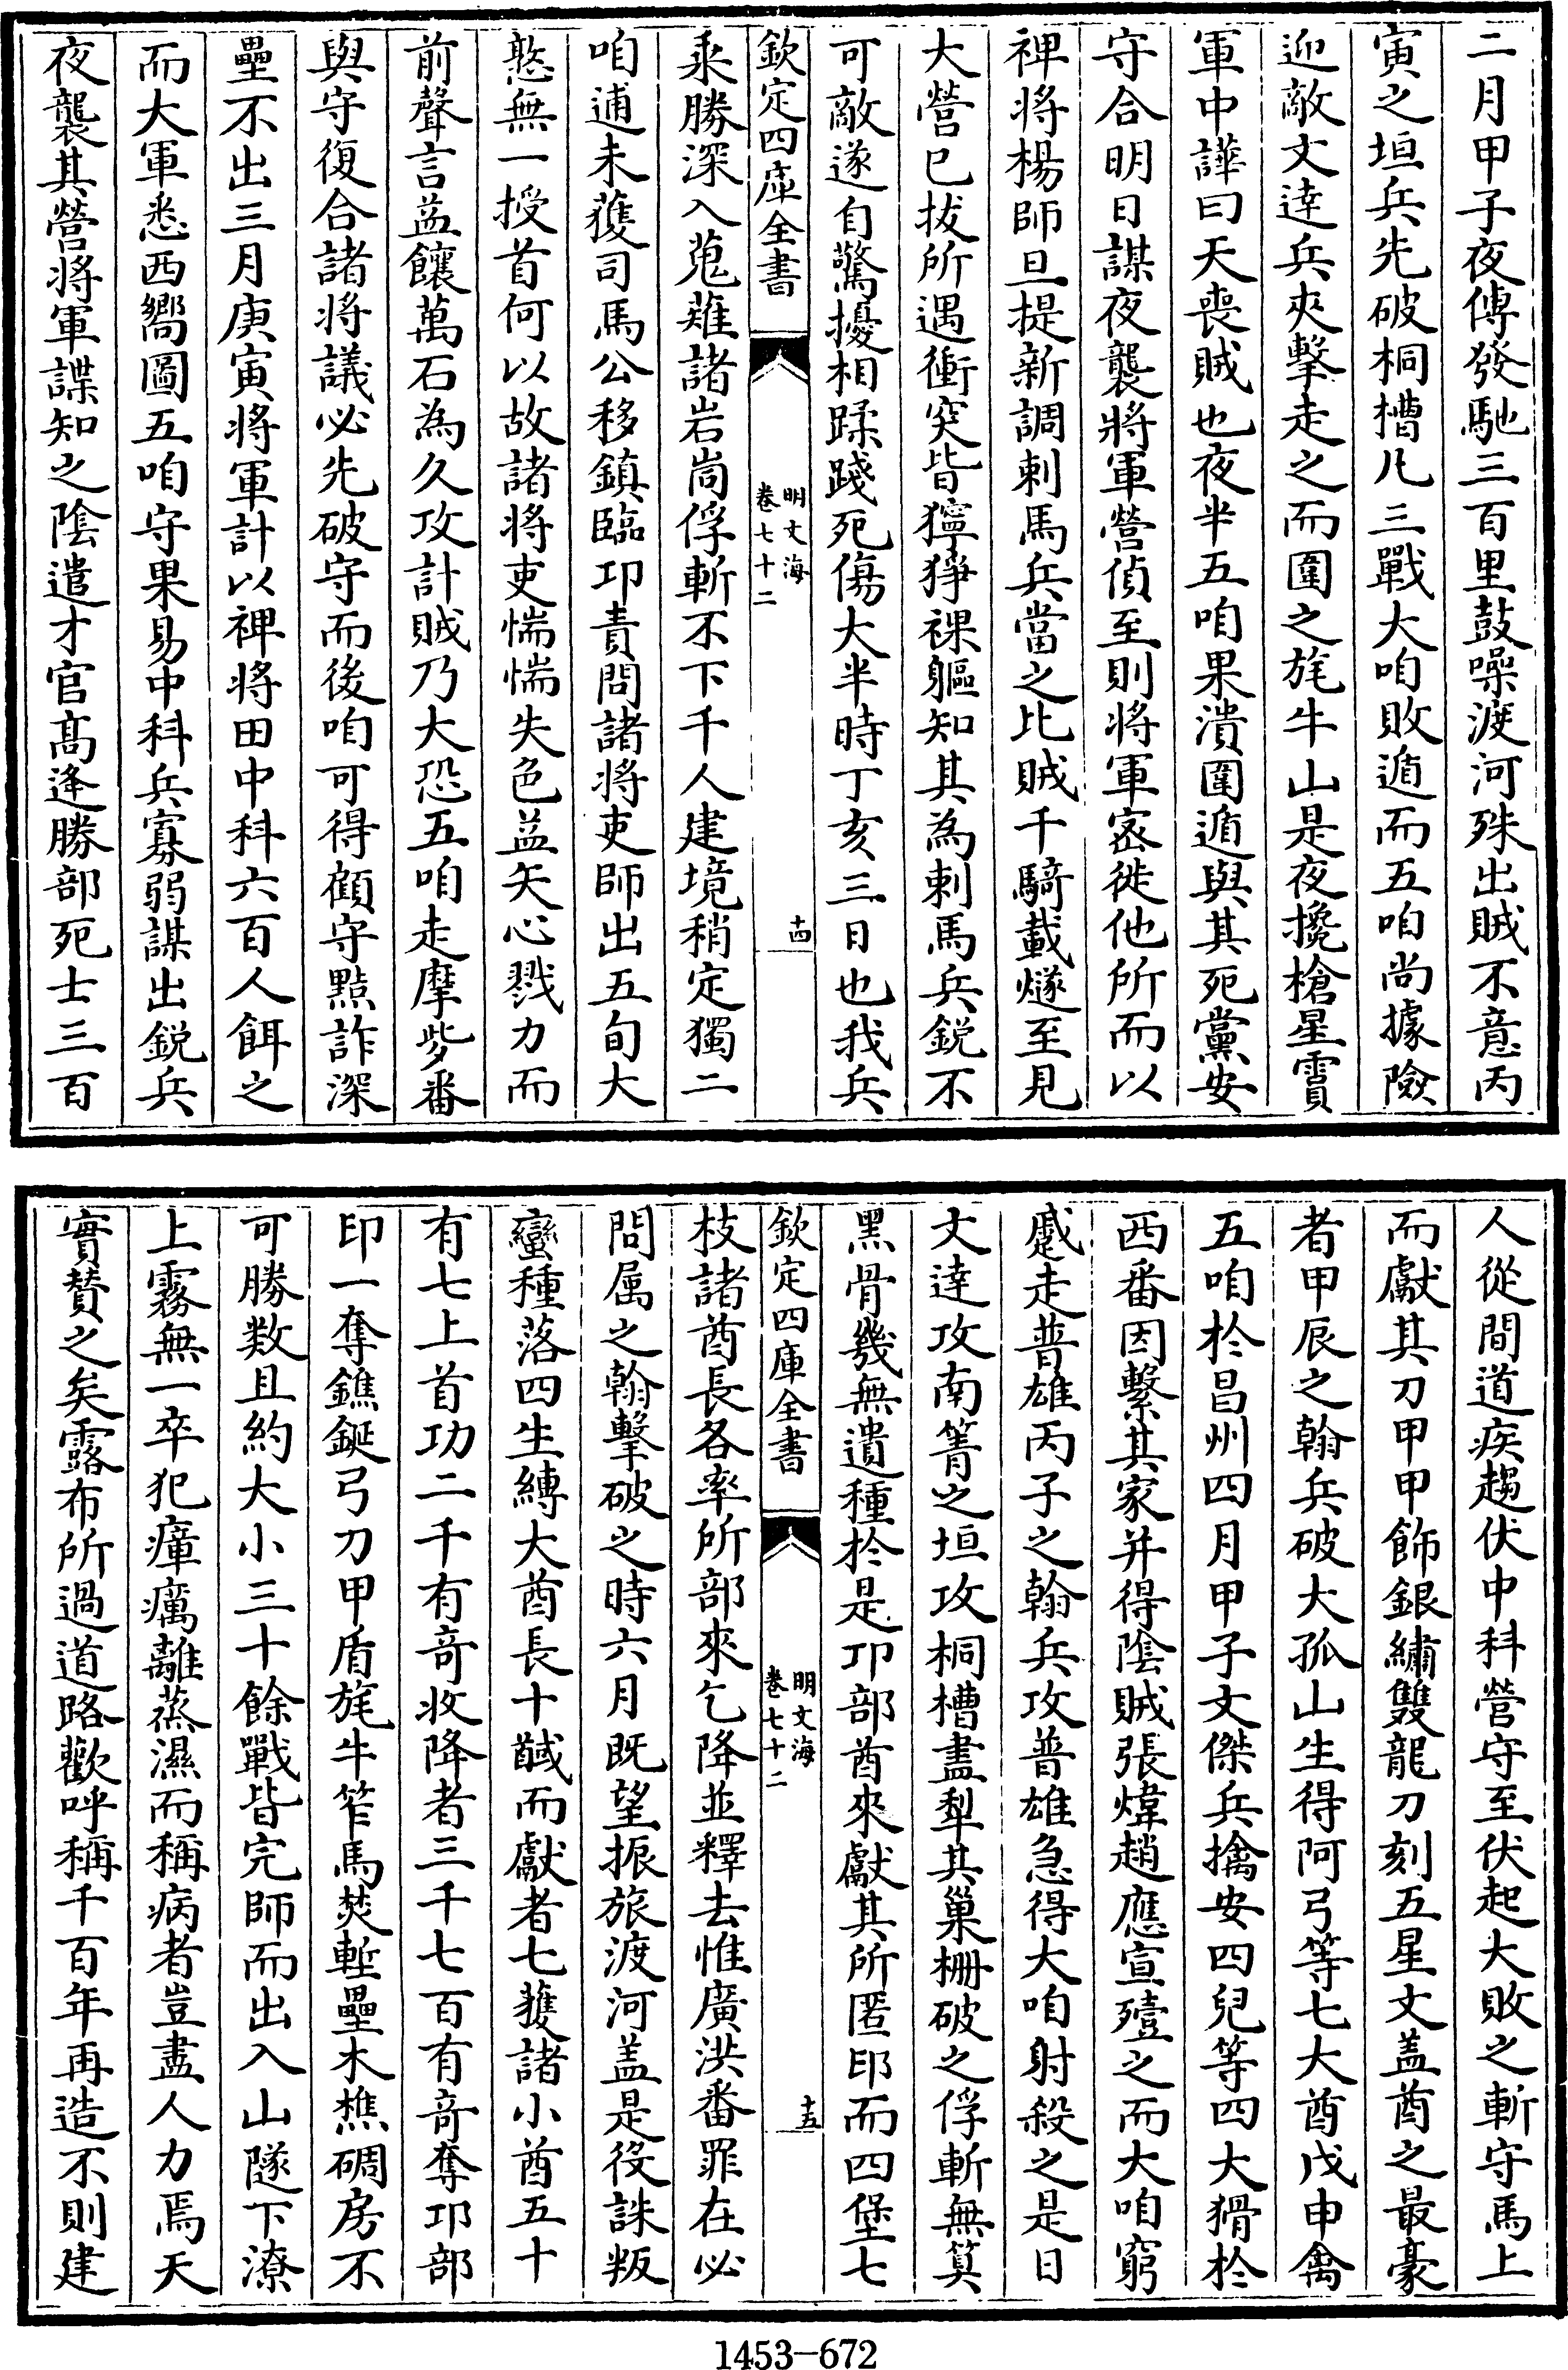 二月甲子夜傳發馳三百里鼓噪渡河殊出賊不意丙
寅之垣兵先破桐槽凡三戰大咱敗遁而五咱尚據險
迎敵文逹兵夾擊走之而圍之旄牛山是夜攙槍星霣
軍中譁曰天喪賊也夜半五咱果潰圍遁與其死黨安
守合明日謀夜襲將軍營偵至則將軍宻徙他所而以
禆將楊師旦提新調剌馬兵當之比賊千騎載燧至見
大營已拔所遇衝突皆獰猙裸軀知其為剌馬兵鋭不
可敵遂自驚擾相蹂踐死傷大半時丁亥三日也我兵
欽定四庫全書
明文海
卷七十二
十四
乘勝深入蒐薙諸岩峝俘斬不下千人建境稍定獨二
咱逋未獲司馬公移鎮臨卭責問諸將吏師出五旬大
憝無一授首何以故諸將吏惴惴失色益矢心戮力而
前聲言益饟萬石為久攻計賊乃大恐五咱走摩娑番
與守復合諸將議必先破守而後咱可得顧守黠詐深
壘不出三月庚寅將軍計以禆將田中科六百人餌之
而大軍悉西嚮圖五咱守果易中科兵寡弱謀出鋭兵
夜襲其營將軍諜知之隂遣才官髙逢勝部死士三百
人從間道疾趨伏中科營守至伏起大敗之斬守馬上
而獻其刀甲甲飾銀繡雙龍刀刻五星文盖酋之最豪
者甲辰之翰兵破大孤山生得阿弓等七大酋戊申禽
五咱於昌州四月甲子文傑兵擒安四兒等四大猾於
西番因繫其家并得隂賊張煒趙應宣殪之而大咱窮
蹙走普雄丙子之翰兵攻普雄急得大咱射殺之是日
文逹攻南箐之垣攻桐槽盡犁其巢栅破之俘斬無筭
黑骨幾無遺種於是卭部酋來獻其所匿印而四堡七
欽定四庫全書
明文海
卷七十二
十五
枝諸酋長各率所部來乞降並釋去惟廣洪番罪在必
問屬之翰擊破之時六月既望振旅渡河盖是役誅叛
蠻種落四生縛大酋長十馘而獻者七獲諸小酋五十
有七上首功二千有奇收降者三千七百有奇奪卭部
印一奪鐎鋋弓刀甲盾旄牛笮馬焚塹壘木樵碉房不
可勝數且約大小三十餘戰皆完師而出入山隧下潦
上霧無一卒犯瘴癘離蒸濕而稱病者豈盡人力焉天
實贊之矣露布所過道路歡呼稱千百年再造不則建
1453-672